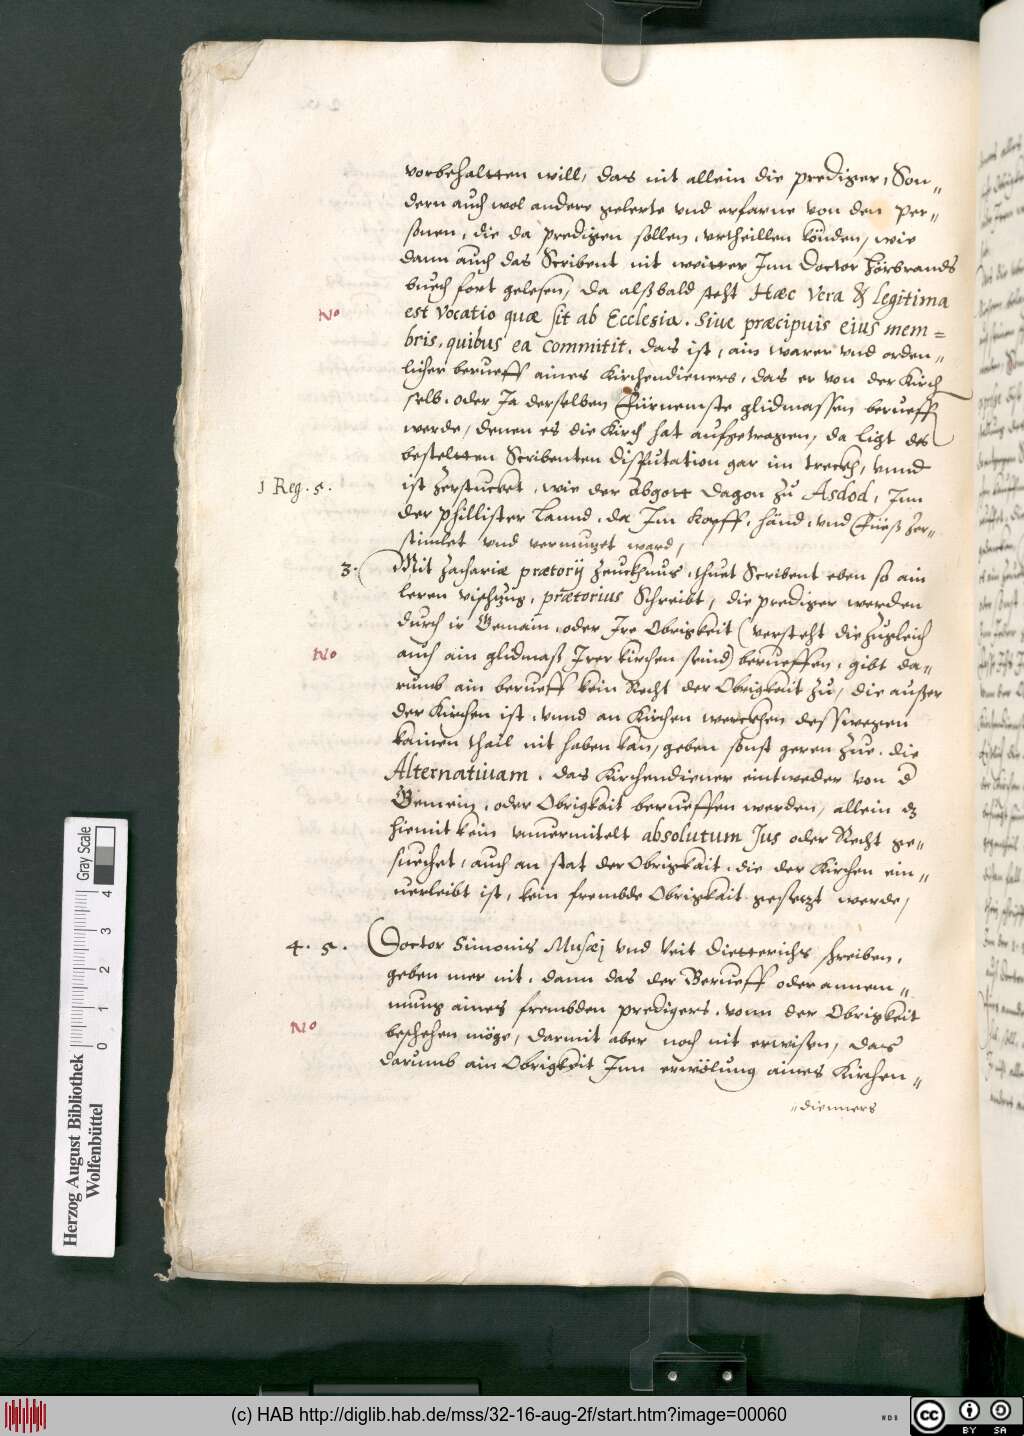 vorbehaltten will, das nit allein die prediger, Son„
dern auch wol andere gelerte vnd erfarne von den Per„
sonen, die da predigen sollen, vrtheillen könden, wie
dann auch das Scribent nit weitter Inn Doctor Hörbrands
buech fort gelesen, da alßbald steht Hæc vera & legitima
No
est vocatio quæ sit ab Ecclesia. Siue præcipuis eius mem=
bris, quibus ea committit. das ist, ain warer vnd orden„
licher berueff aines Kirchendieners, das er von der Kirch
selb. oder Ja derselben Fürnemste glidmassen berueff
werde, denen es die Kirch hat aufgetragen, da ligt des
besteltten Scribenten disputation gar im treckh, vnnd
1 Reg. 5.
ist zerstucket, wie der Abgott Dagon zu Asdod, Inn
der Phillister Lannd, da Im Kopff, händ, vnd Füeß zer„
stimlet vnd vermutzet ward,
3. Mit Zachariæ prætorij zeuckhnus, thuet Scribent eben so ain
leren vischzug, prætorius Schreibt, die prediger werden
durch ir Gemain, oder Ire Obrigkeit (versteht die zugleich
No
auch ain glidmaß Irer kirchen seind) berueffen, gibt da„
rumb ain berueff kein Recht der Obrigkait zu, die ausser
der Kirchen ist, vnnd an Kirchen werckhen desswegen
kainen thail nit haben kan, geben sonst geren zue. die
Alternatiuam. das Kirchendiener eintweder von d
Gemein, oder Obrigkait berueffen werden, allein dz
hiemit kein vnuermitelt absolutum Jus oder Recht ge„
suechet, auch an stat der Obrigkait, die der Kirchen ein„
uerleibt ist, kein frembde Obrigkait gesetzt werde,
4. 5. Doctor Simonis Musæj vnd Veit Dietterichs schreiben,
geben mer nit, dann das der Berueff oder annem„
mung aines frembden predigers, vonn der Obrigkeit
No
beschehen möge, darmit aber noch nit erwisen, das
darumb ain Obrigkeit Inn erwölung aines Kirchen„
„dienners
Herzog August Bibliothek
Wolfenbüttel
0 1 2 3 4
Gray Scale
(c) HAB http://diglib.hab.de/mss/32-16-aug-2f/start.htm?image=00060
WDB
cc BY SA